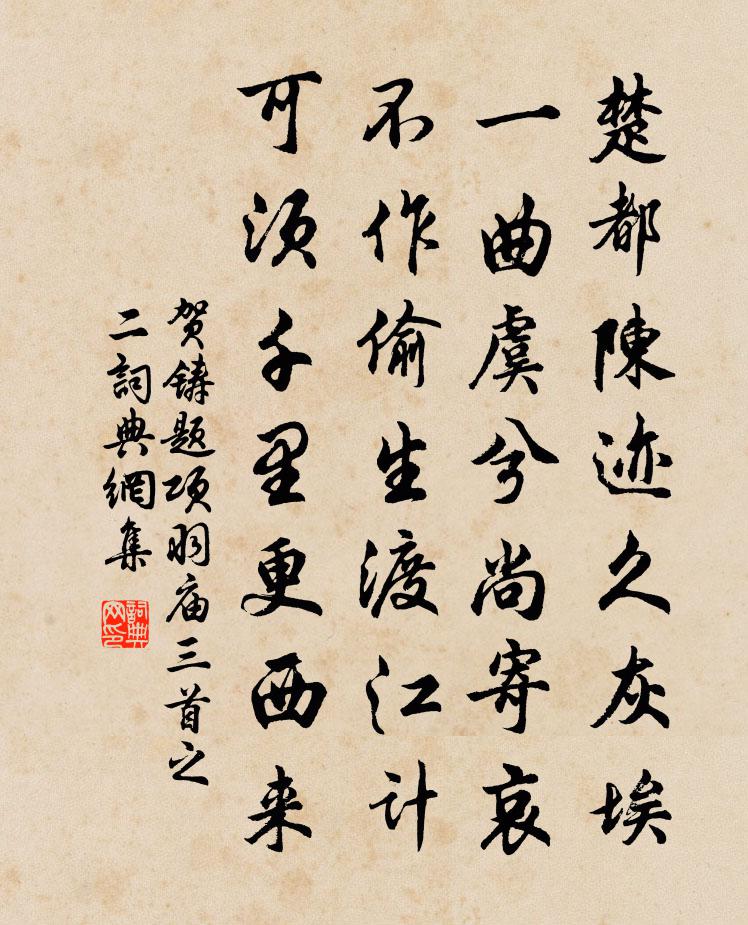 楚都陳迹久灰埃
一曲虞兮尚寄哀
不作偷生渡江计
可须千里更西来
贺鑄题项羽庙三首之
二詞典網集
詞典网印